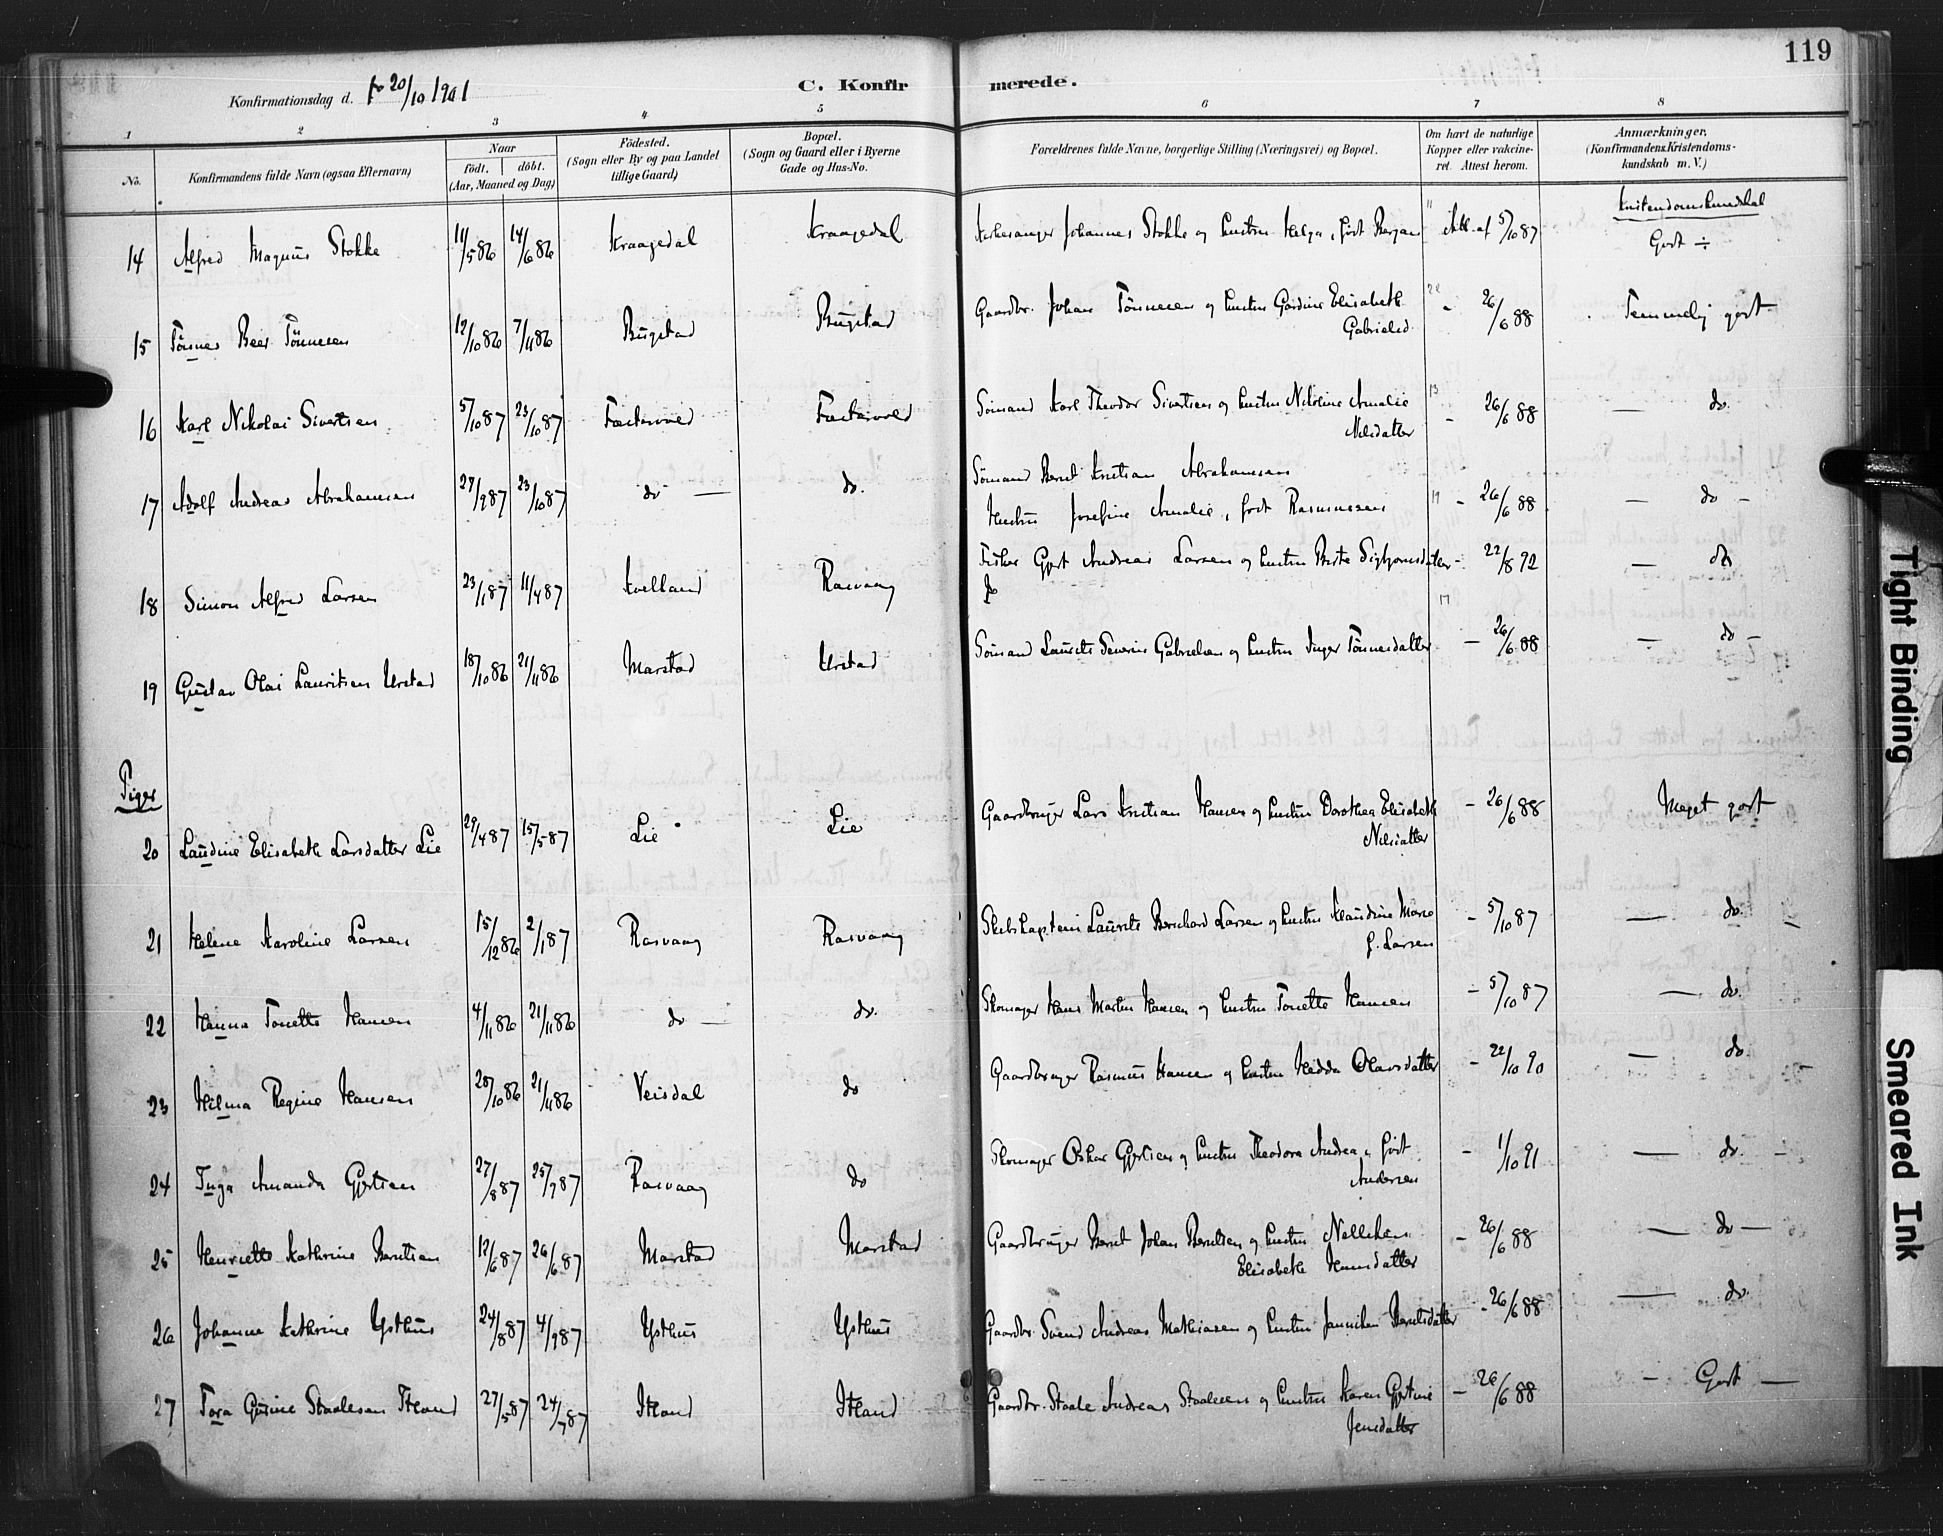 119
Konfirmationsdag d. 20/10 1901
C. Konfirmerede.
1 2 3 4 5 6 7 8
No.
Konfirmandens fulde Navn (ogsaa Efternavn)
Naar
födt. döbt.
(Aar, Maaned og Dag)
Födested.
(Sogn eller By og paa Landet
tillige Gaard)
Bopæl.
(Sogn og Gaard eller i Byerne
Gade og Hus-No.
Forældrenes fulde Navne, borgerlige Stilling (Næringsvei) og Bopæl.
Om havt de naturlige
Kopper eller vakcine-
ret. Attest herom.
Anmærkninger.
(Konfirmandens Kristendoms-
kundskab m. V.)
Kristendomskundskab
14 Alfred Magnus Stokke 11/5 86 14/6 86 Kraagedal Kraagedal Kirkesanger Johannes Stokke og Hustru Helga, født Berjan Att. af 5/10 87 Godt ÷
15 Tønnes Beer Tönnesen 12/10 86 7/11 86 Bugstad Bugstad Gaardbr. Johan Tönnesen og Hustru Gardine Elisabeth - 26/6 88 Temmelig godt
Gabrielsd.
16 Karl Nikolai Sivertsen 5/10 87 23/10 87 Sömand Karl Theodor Sivertsen og Hustru Nikoline Amalie - 26/6 88 — do.
Nilsdatter
17 Adolf Andreas Abrahamsen 27/9 87 23/10 87 do — do. Sömand Bernt Kristian Abrahamsen
Hustru Josefine Amalie, født Rasmussen - 26/6 88 — do -
18 Simon Alfred Larsen 23/1 87 11/4 87 Kvelland Rasvaag Fisker Gjert Andreas Larsen og Hustru Berte Sigbjørnsdatter - 22/8 92 — do
19 Gustav Olai Lauritsen Urstad 18/10 86 21/11 86 Marstad Urstad Sömand Laurits Severin Gabrielsen og Hustru Inger Tönnesdatter — 26/6 88 — do -
Piger
20 Laudine Elisabeth Larsdatter Lie 29/4 87 15/5 87 Lie Lie Gaardbruger Lars Kristian Hansen og Hustru Dorothea Elisabeth - 26/6 88 Meget godt
Nilsdatter
21 Helene Karoline Larsen 15/12 86 2/1 87 Rasvaag Rasvaag Skibskaptein Laurits Bernhard Larsen og Hustru Klaudine Marie - 5/10 87 — do.
f. Larsen
22 Hanna Tonette Hansen 4/11 86 21/11 86 do — do. Skomager Hans Martin Hansen og Hustru Tonette Hansen - 5/10 87 — do.
23 Hilma Regine Hansen 28/10 86 21/11 86 Veisdal do Gaardbruger Rasmus Hansen og Hustru Hedda Olavsdatter - 22/10 90 — do.
24 Inga Amanda Gjertsen 27/8 87 25/9 87 Rasvaag do Skomager Oskar Gjertsen og Hustru Theodora Andrea, født - 1/10 91 — do -
Andersen
25 Henriette Kathrine Berntsen 12/6 87 26/6 87 Marstad Marstad Gaardbruger Bernt Johan Berntsen og Hustru Nelleken - 26/6 88 — do —
Elisabeth Hansdatter
26 Johanne Kathrine Ysthus 24/8 87 4/9 87 Ysthus Ysthus Gaardbr. Svend Andreas Mathiasen og Hustru Janniken Berntsdatter - 26/6 88 — do.
27 Tora Gusine Staalesen Itland 27/5 87 24/7 87 Itland Itland Gaardbr. Staale Andreas Staalesen og Hustru Karen Gjertine — 26/6 88 - Godt —
Jensdatter
Tight Binding
Smeared Ink